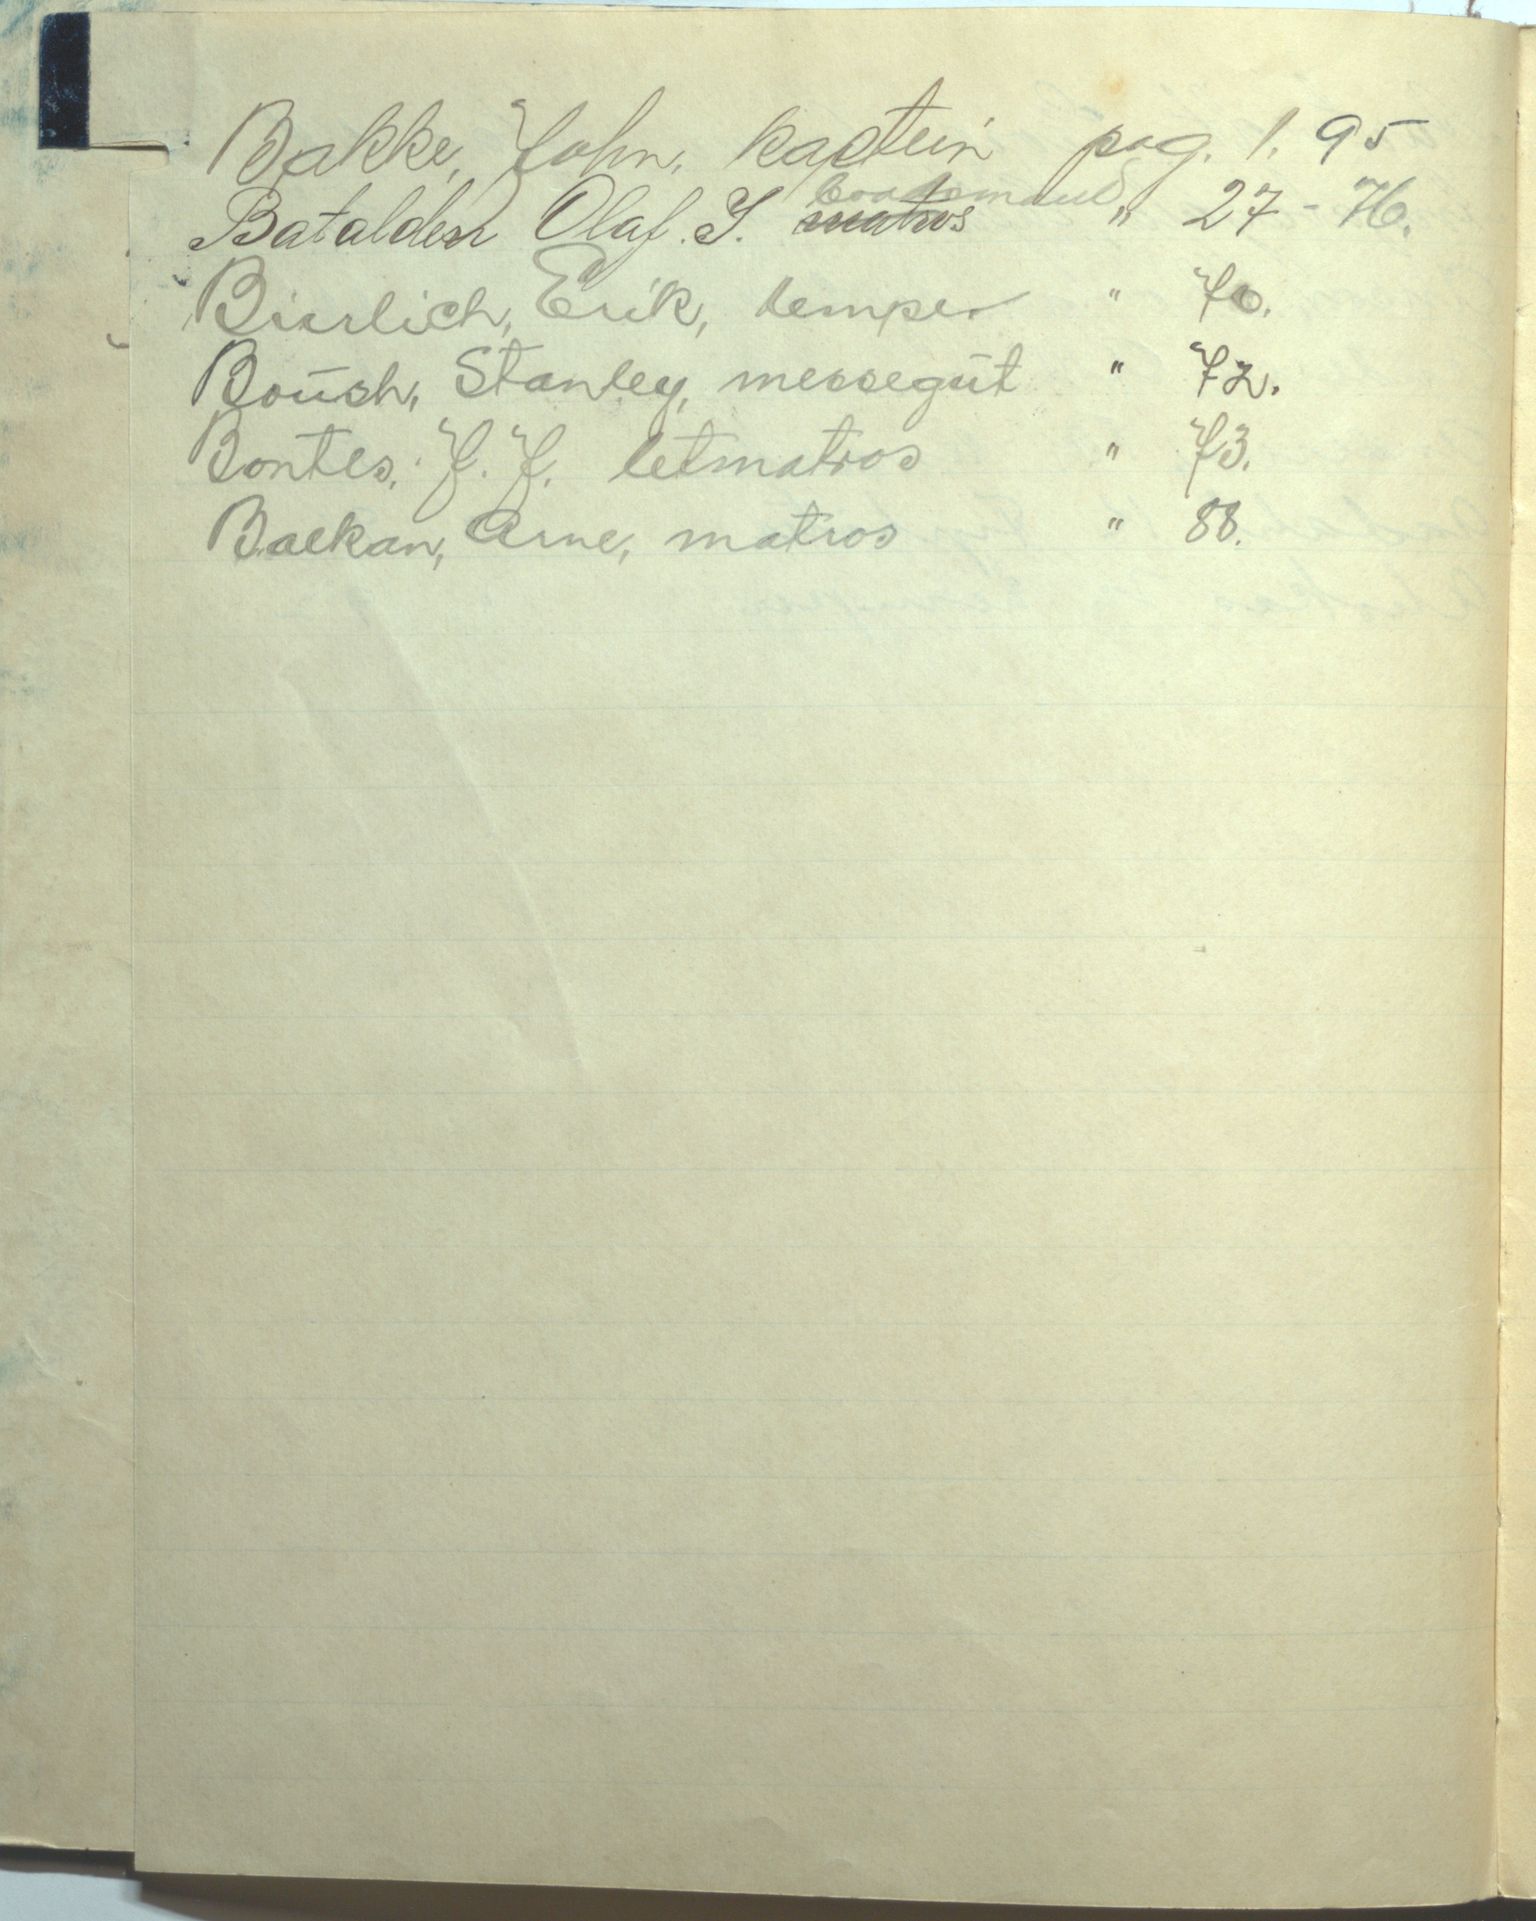 Bakke, John, kaptein pag. 1. 95
Batalden Olaf. S. matros baadsmand " 27 - 76.
Bierlich, Erik, lemper " 70.
Boush, Stanley, messegut " 72.
Bontes, J. J. letmatros " 73.
Backan, Arne, matros " 88.